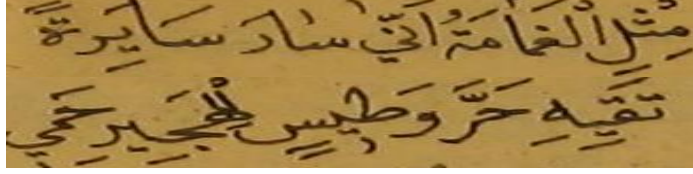 مِثْلِ الْغَمَامَةُ اَنّي سَارَ سَايِرَةً
تَقِيهِ حَرَّ وَطِيسٍ لِلْهَجِيرِ حَمِي